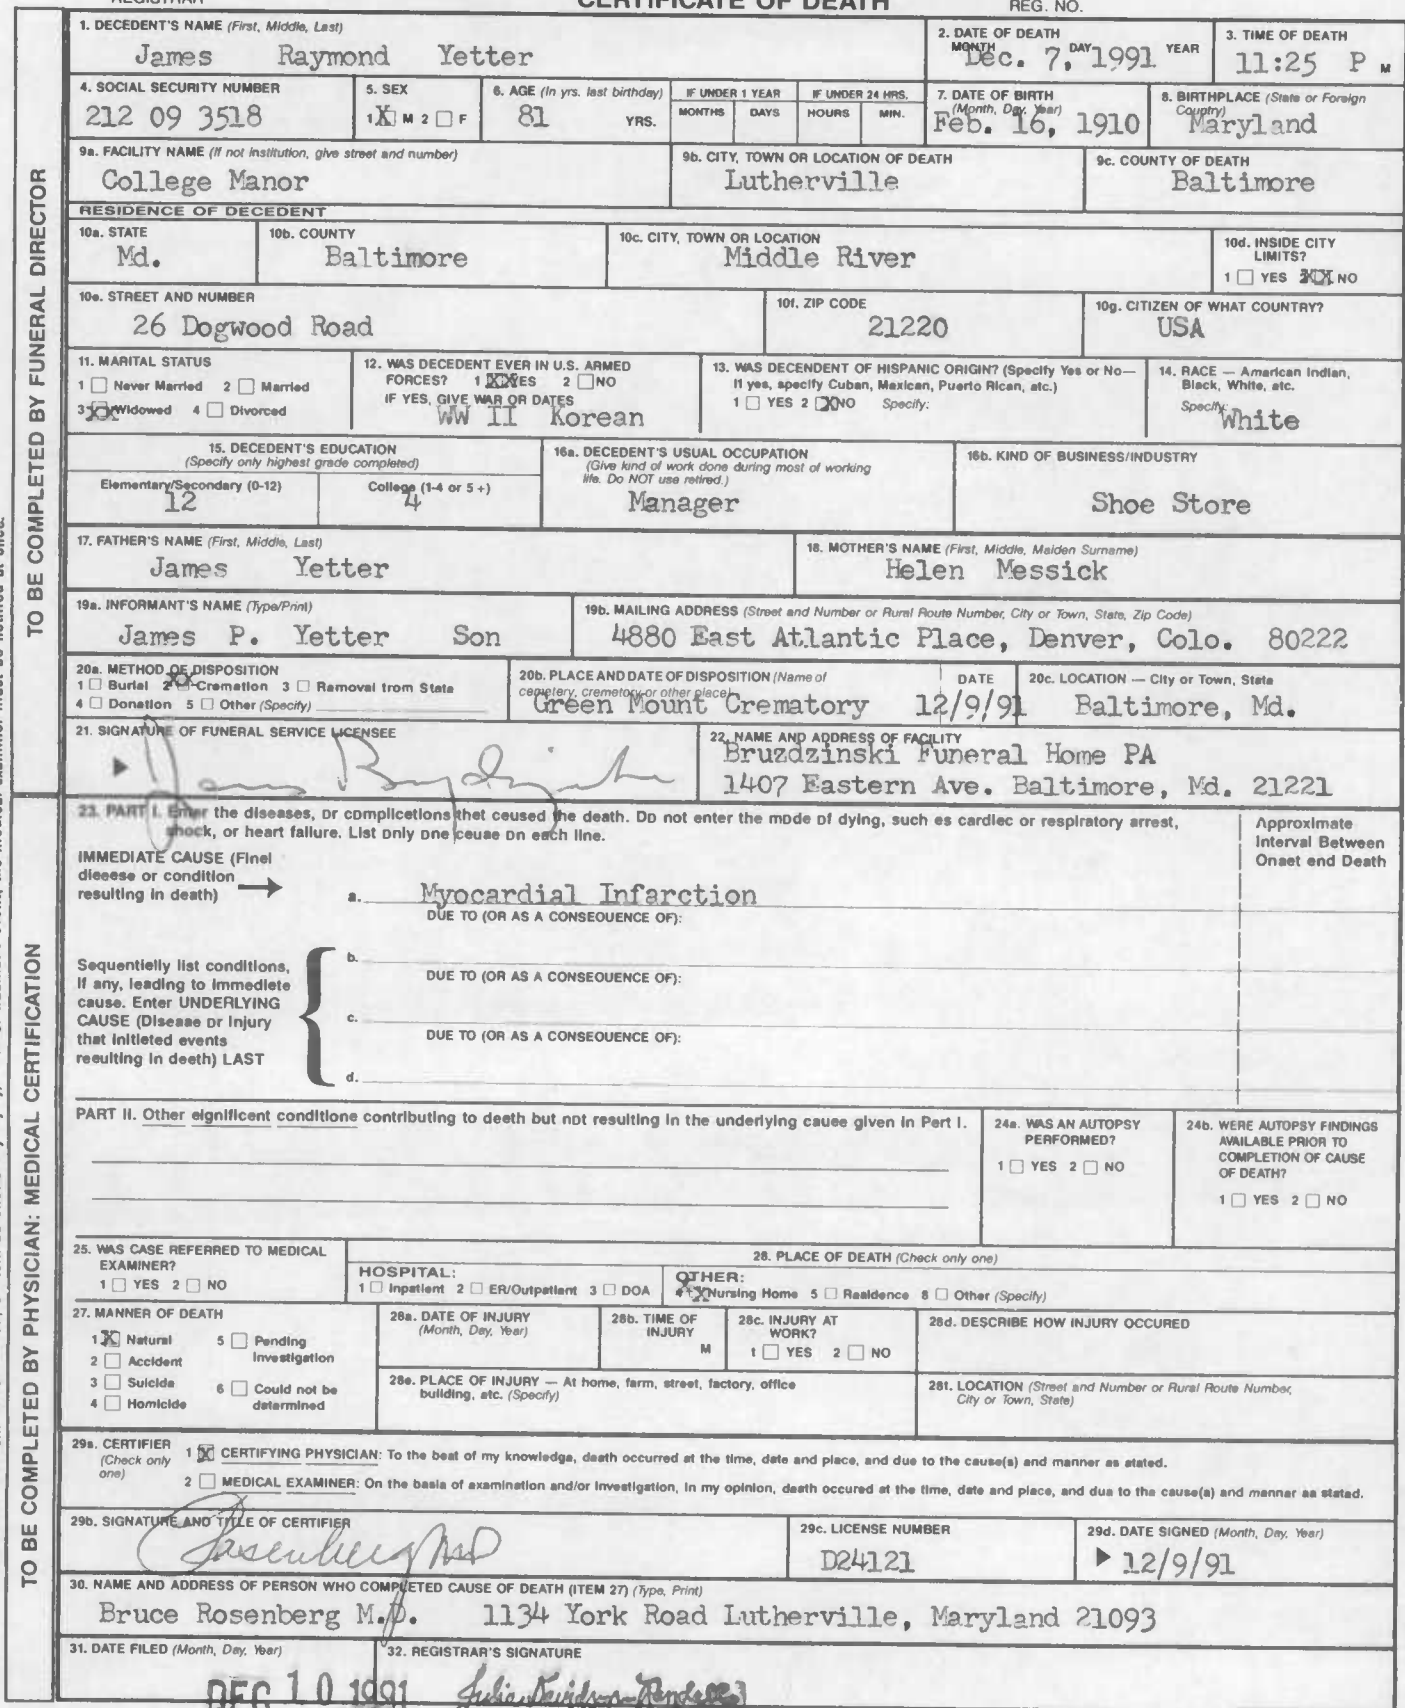 REGISTRAR CERTIFICATE OF DEATH REG. NO.
TO BE COMPLETED BY FUNERAL DIRECTOR
1. DECEDENT'S NAME (First, Middle, Last)
James Raymond Yetter
2. DATE OF DEATH
MONTH DAY YEAR
Dec. 7, 1991
3. TIME OF DEATH
11:25 P M
4. SOCIAL SECURITY NUMBER
212 09 3518
5. SEX
1 X M 2 F
6. AGE (In yrs. last birthday)
81 YRS.
IF UNDER 1 YEAR
MONTHS DAYS
IF UNDER 24 HRS.
HOURS MIN.
7. DATE OF BIRTH
(Month, Day, Year)
Feb. 16, 1910
8. BIRTHPLACE (State or Foreign
Country)
Maryland
9a. FACILITY NAME (If not institution, give street and number)
College Manor
9b. CITY, TOWN OR LOCATION OF DEATH
Lutherville
9c. COUNTY OF DEATH
Baltimore
RESIDENCE OF DECEDENT
10a. STATE
Md.
10b. COUNTY
Baltimore
10c. CITY, TOWN OR LOCATION
Middle River
10d. INSIDE CITY
LIMITS?
1 YES 2 XX NO
10e. STREET AND NUMBER
26 Dogwood Road
10f. ZIP CODE
21220
10g. CITIZEN OF WHAT COUNTRY?
USA
11. MARITAL STATUS
1 Never Married 2 Married
3 XX Widowed 4 Divorced
12. WAS DECEDENT EVER IN U.S. ARMED
FORCES? 1 XX YES 2 NO
IF YES, GIVE WAR OR DATES
WW II Korean
13. WAS DECENDENT OF HISPANIC ORIGIN? (Specify Yes or No—
If yes, specify Cuban, Mexican, Puerto Rican, etc.)
1 YES 2 X NO Specify:
14. RACE — American Indian,
Black, White, etc.
Specify:
White
15. DECEDENT'S EDUCATION
(Specify only highest grade completed)
Elementary/Secondary (0-12)
12
College (1-4 or 5+)
4
16a. DECEDENT'S USUAL OCCUPATION
(Give kind of work done during most of working
life. Do NOT use retired.)
Manager
16b. KIND OF BUSINESS/INDUSTRY
Shoe Store
17. FATHER'S NAME (First, Middle, Last)
James Yetter
18. MOTHER'S NAME (First, Middle, Maiden Surname)
Helen Messick
19a. INFORMANT'S NAME (Type/Print)
James P. Yetter Son
19b. MAILING ADDRESS (Street and Number or Rural Route Number, City or Town, State, Zip Code)
4880 East Atlantic Place, Denver, Colo. 80222
20a. METHOD OF DISPOSITION
1 Burial 2 XX Cremation 3 Removal from State
4 Donation 5 Other (Specify)
20b. PLACE AND DATE OF DISPOSITION (Name of
cemetery, crematory or other place)
Green Mount Crematory
DATE
12/9/91
20c. LOCATION — City or Town, State
Baltimore, Md.
21. SIGNATURE OF FUNERAL SERVICE LICENSEE
22. NAME AND ADDRESS OF FACILITY
Bruzdzinski Funeral Home PA
1407 Eastern Ave. Baltimore, Md. 21221
TO BE COMPLETED BY PHYSICIAN: MEDICAL CERTIFICATION
23. PART I. Enter the diseases, or complications that caused the death. Do not enter the mode of dying, such as cardiac or respiratory arrest,
shock, or heart failure. List only one cause on each line.
Approximate
Interval Between
Onset and Death
IMMEDIATE CAUSE (Final
disease or condition
resulting in death)
a. Myocardial Infarction
DUE TO (OR AS A CONSEQUENCE OF):
Sequentially list conditions,
if any, leading to immediate
cause. Enter UNDERLYING
CAUSE (Disease or Injury
that initiated events
resulting in death) LAST
b.
DUE TO (OR AS A CONSEQUENCE OF):
c.
DUE TO (OR AS A CONSEQUENCE OF):
d.
PART II. Other significant conditions contributing to death but not resulting in the underlying cause given in Part I.
24a. WAS AN AUTOPSY
PERFORMED?
1 YES 2 NO
24b. WERE AUTOPSY FINDINGS
AVAILABLE PRIOR TO
COMPLETION OF CAUSE
OF DEATH?
1 YES 2 NO
25. WAS CASE REFERRED TO MEDICAL
EXAMINER?
1 YES 2 NO
26. PLACE OF DEATH (Check only one)
HOSPITAL:
1 Inpatient 2 ER/Outpatient 3 DOA
OTHER:
4 X Nursing Home 5 Residence 6 Other (Specify)
27. MANNER OF DEATH
1 X Natural 5 Pending
Investigation
2 Accident
3 Suicide 6 Could not be
determined
4 Homicide
28a. DATE OF INJURY
(Month, Day, Year)
28b. TIME OF
INJURY
M
28c. INJURY AT
WORK?
1 YES 2 NO
28d. DESCRIBE HOW INJURY OCCURED
28e. PLACE OF INJURY — At home, farm, street, factory, office
building, etc. (Specify)
28f. LOCATION (Street and Number or Rural Route Number,
City or Town, State)
29a. CERTIFIER
(Check only
one)
1 X CERTIFYING PHYSICIAN: To the best of my knowledge, death occurred at the time, date and place, and due to the cause(s) and manner as stated.
2 MEDICAL EXAMINER: On the basis of examination and/or investigation, in my opinion, death occured at the time, date and place, and due to the cause(s) and manner as stated.
29b. SIGNATURE AND TITLE OF CERTIFIER
Rosenberg MD
29c. LICENSE NUMBER
D24121
29d. DATE SIGNED (Month, Day, Year)
12/9/91
30. NAME AND ADDRESS OF PERSON WHO COMPLETED CAUSE OF DEATH (ITEM 27) (Type, Print)
Bruce Rosenberg M.D. 1134 York Road Lutherville, Maryland 21093
31. DATE FILED (Month, Day, Year)
DEC 10 1991
32. REGISTRAR'S SIGNATURE